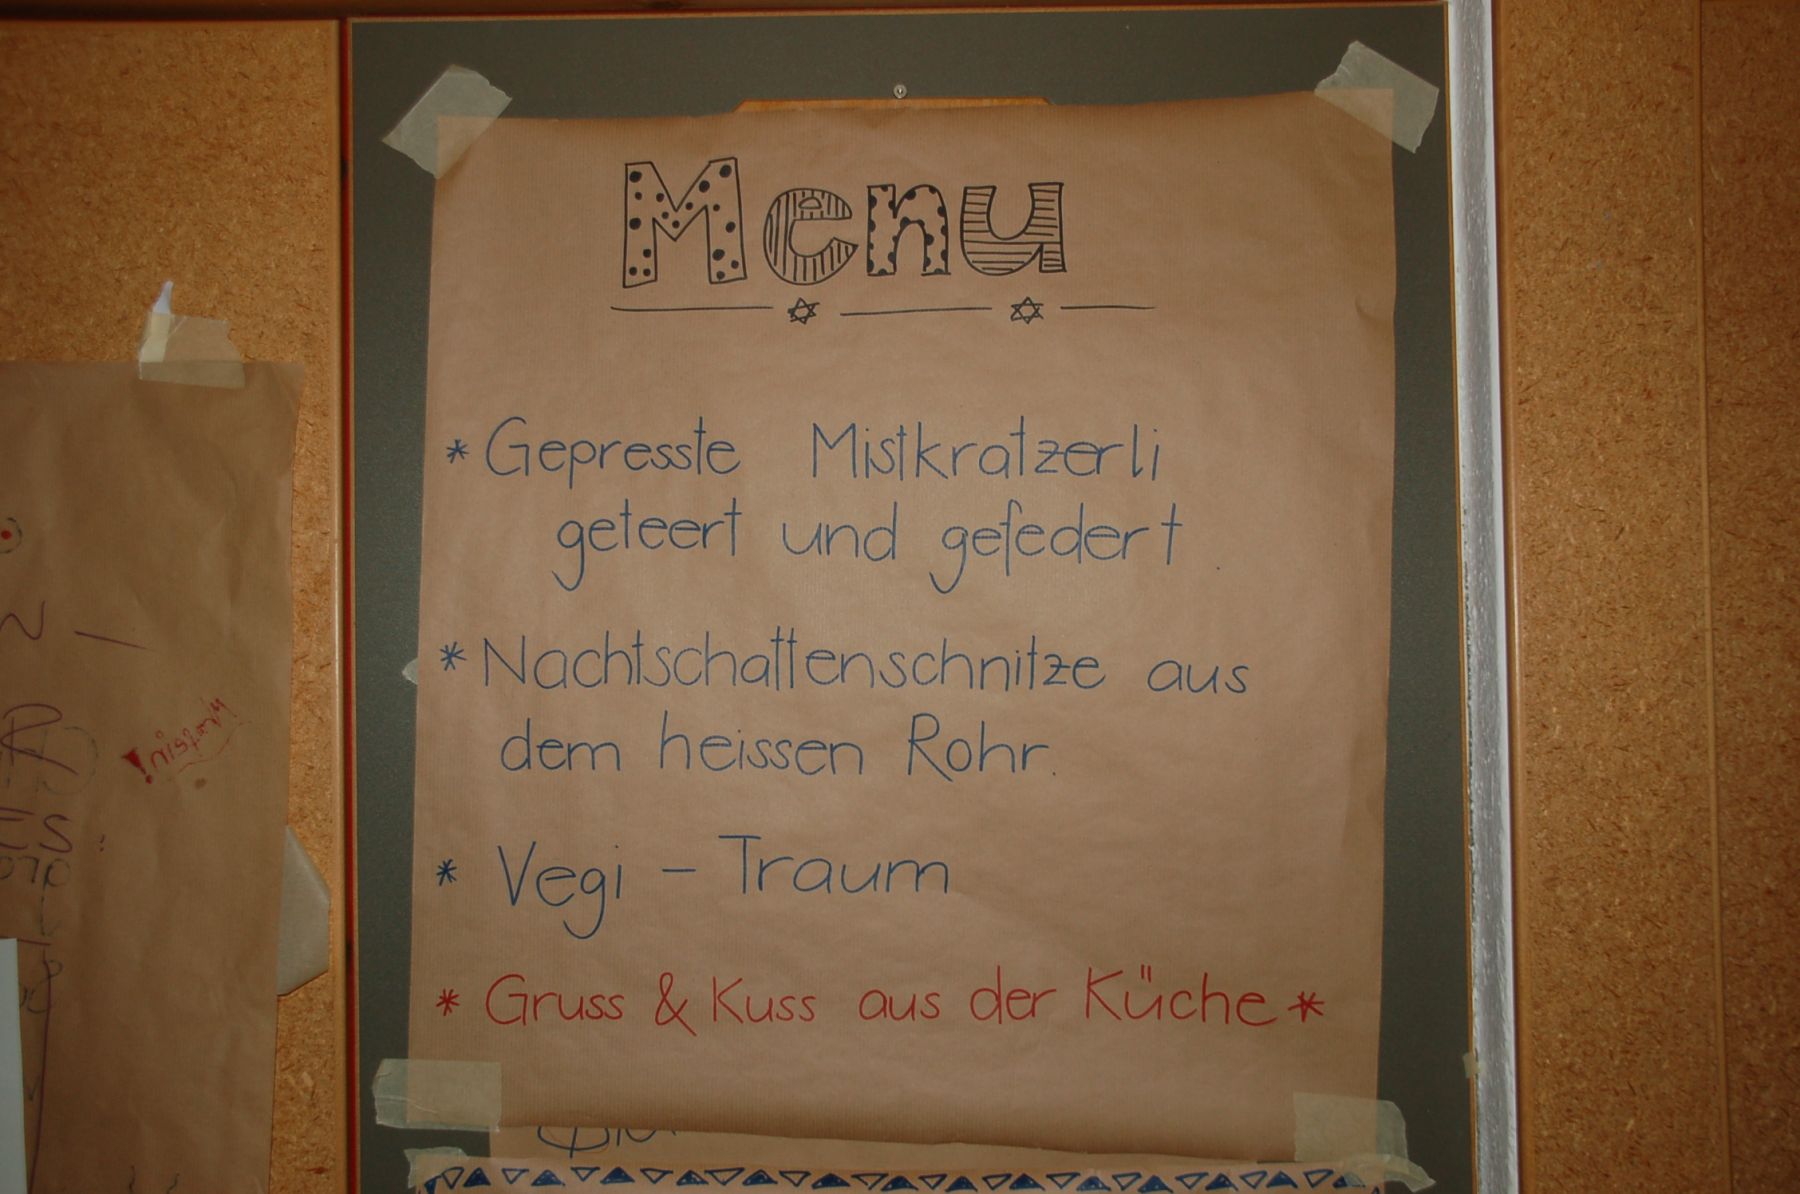 Menu
* Gepresste Mistkratzerli
geteert und gefedert
* Nachtschattenschnitze aus
dem heissen Rohr.
* Vegi - Traum
* Gruss & Kuss aus der Küche *